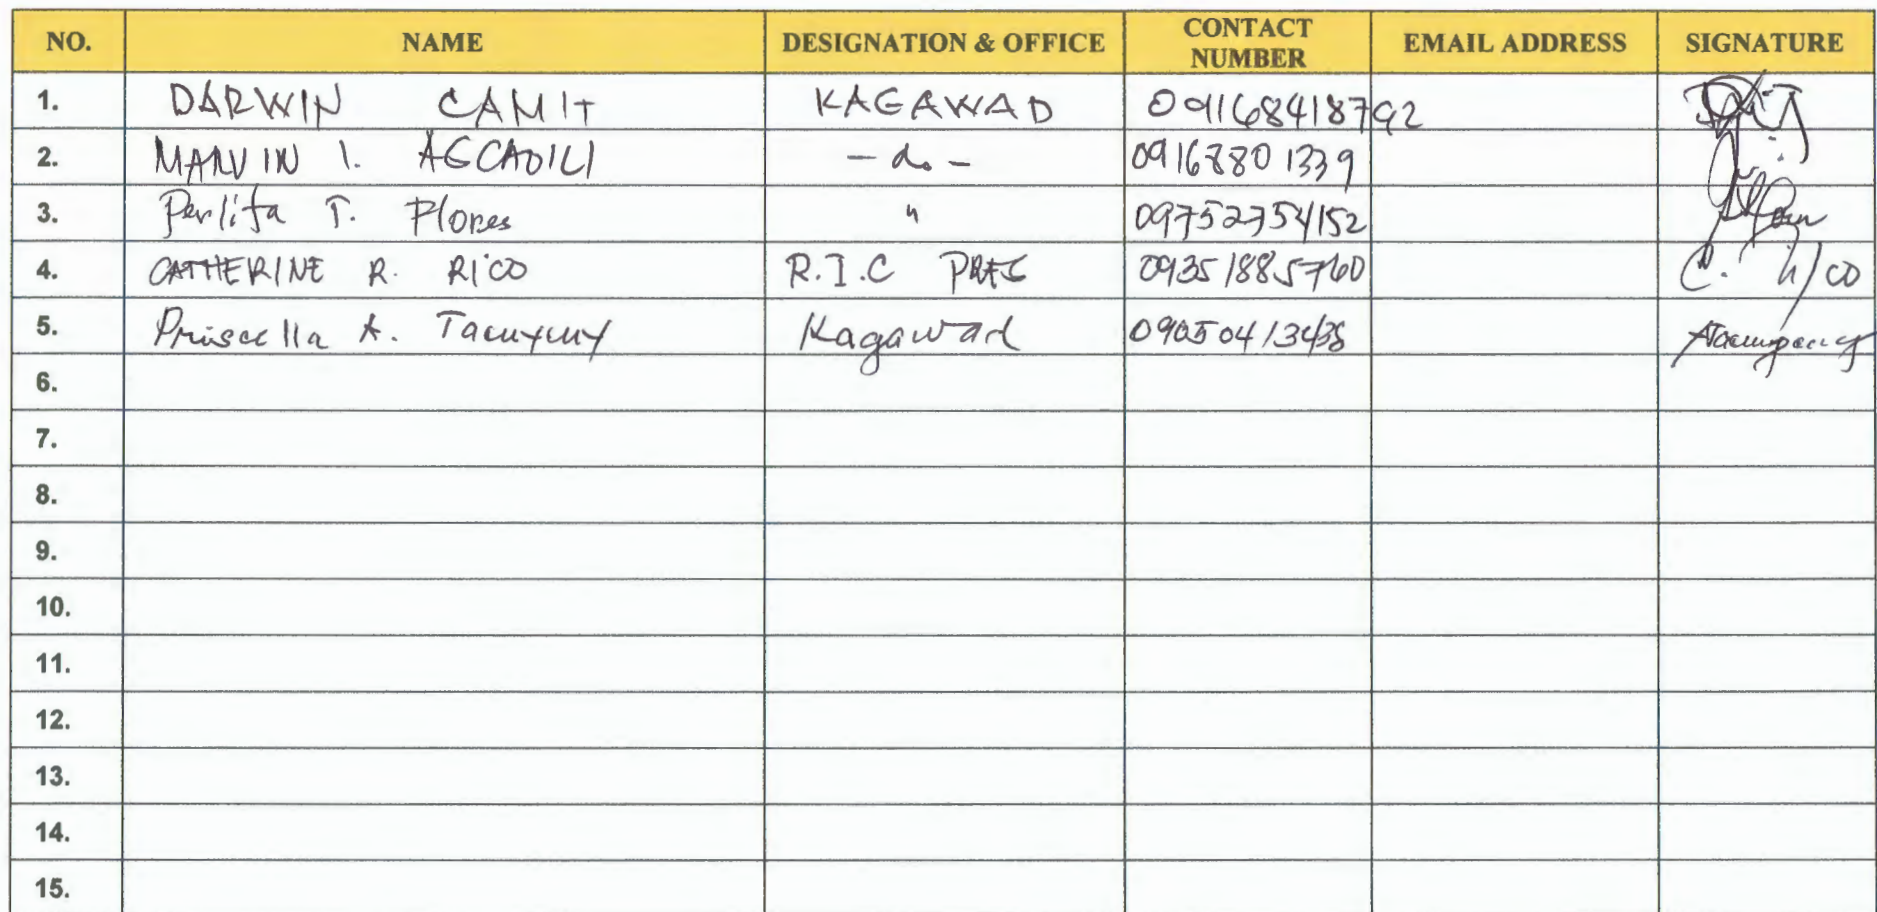 NO. NAME DESIGNATION & OFFICE CONTACT NUMBER EMAIL ADDRESS SIGNATURE
1. DARWIN CAMIT KAGAWAD
2. MARVIN I. AGCAOILI - do - 09168801339
3. Perlita T. Flores " 09752754152
4. CATHERINE R. RICO R.I.C PRES 09351885760 C. Rico
5. Priscella A. Kagawad
6.
7.
8.
9.
10.
11.
12.
13.
14.
15.